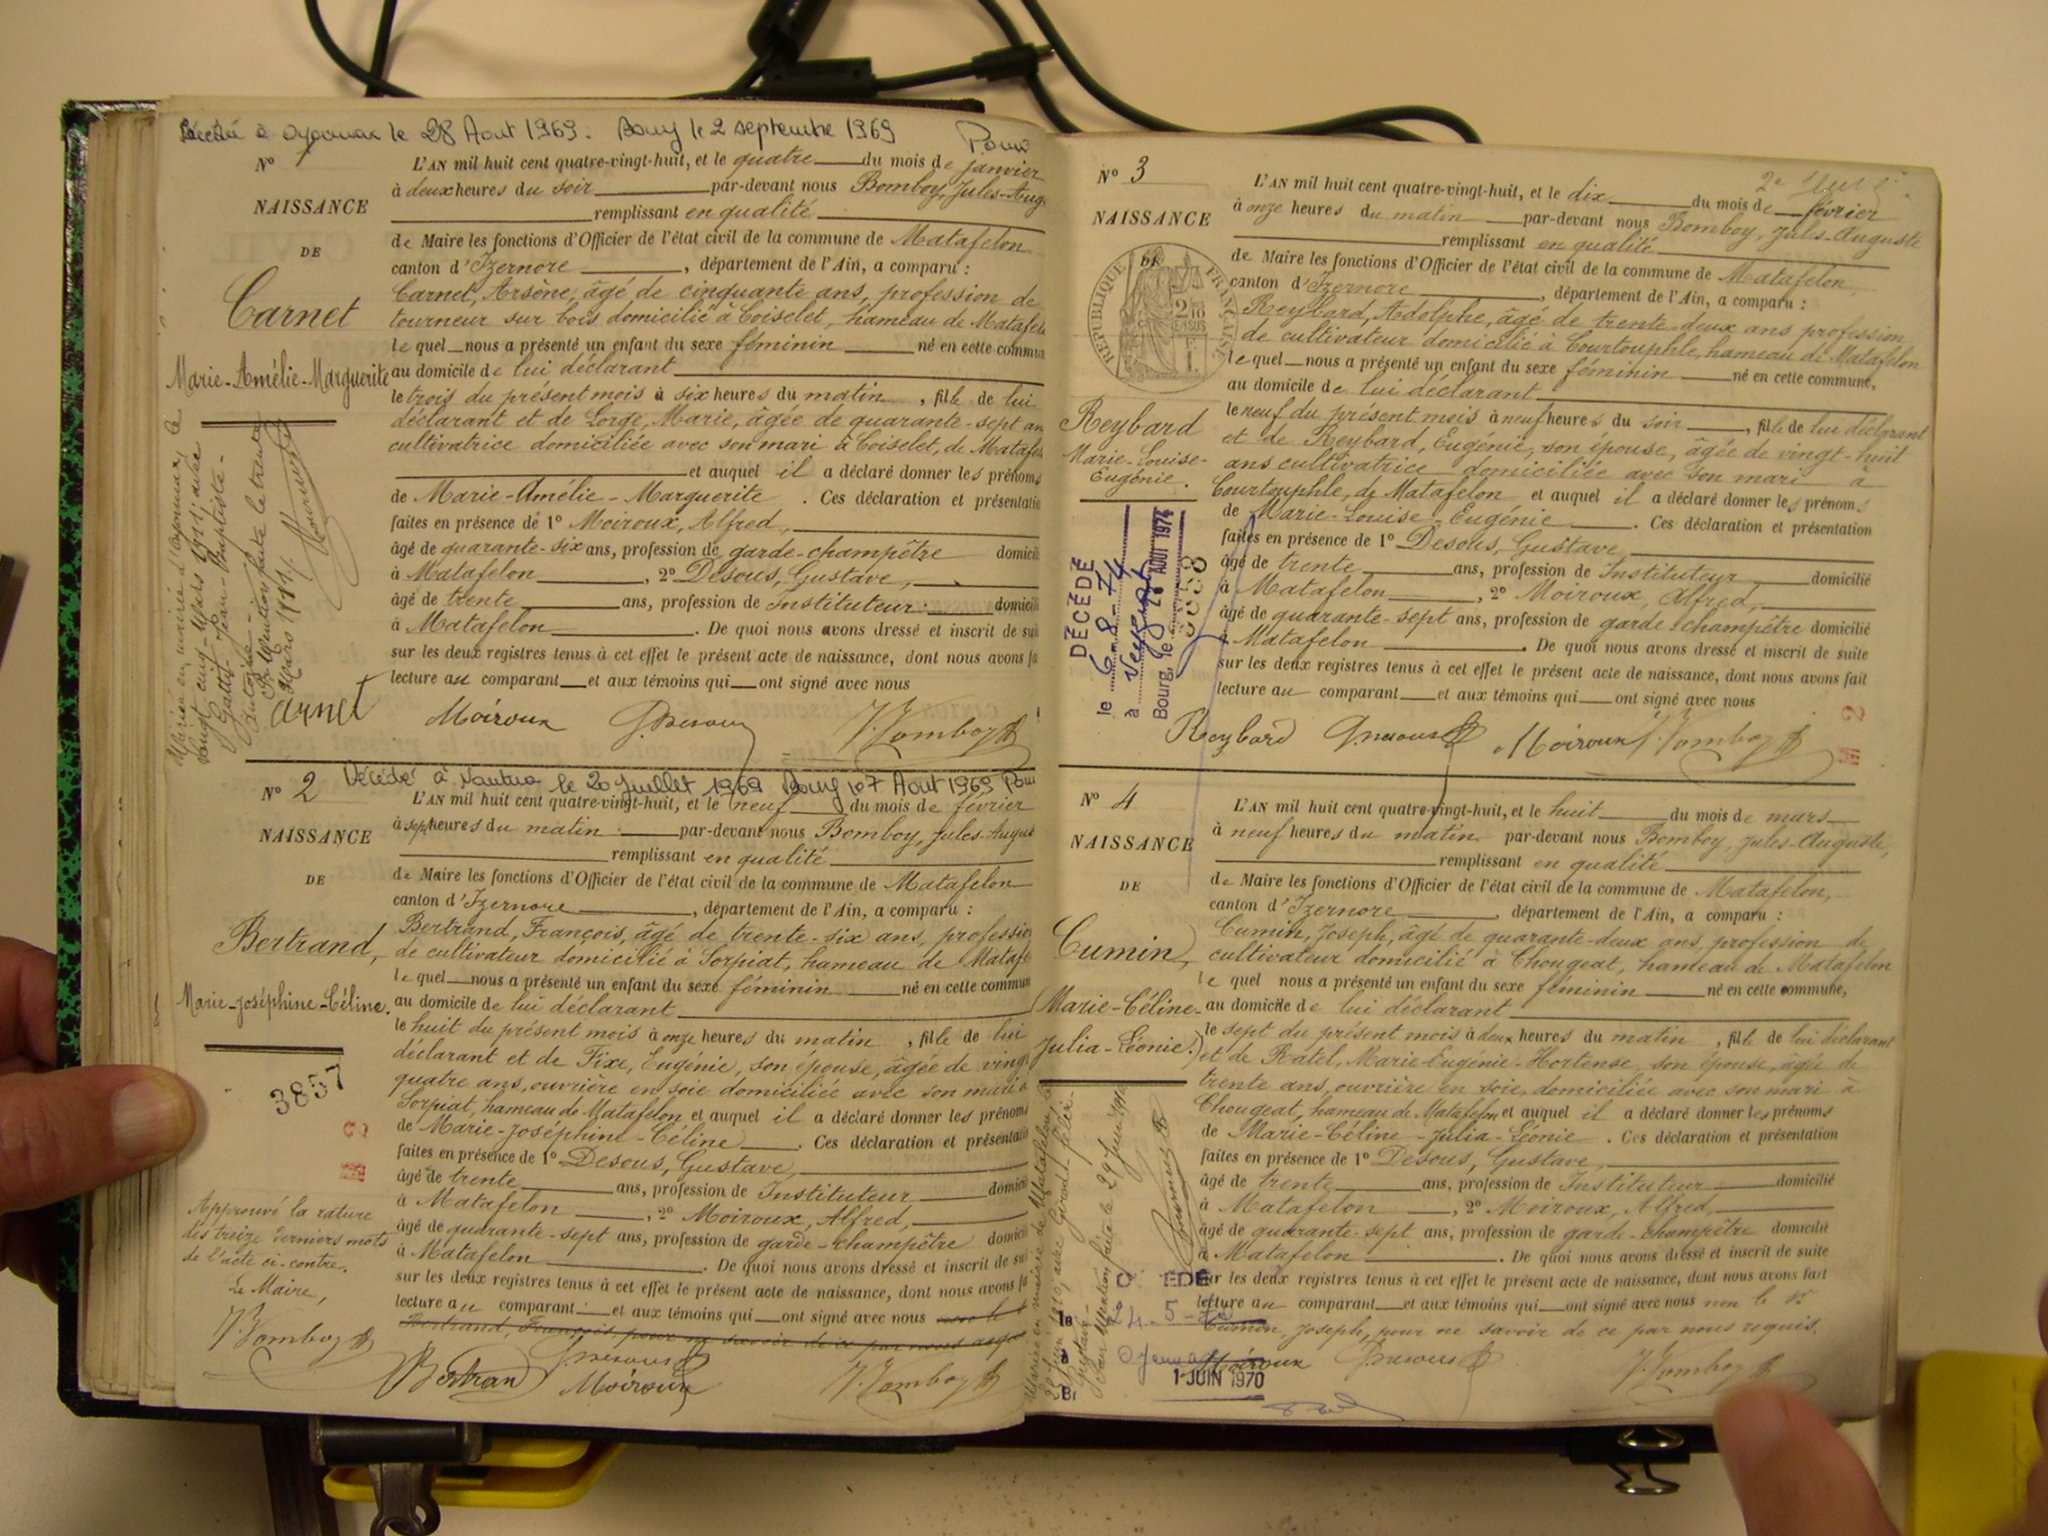 Décédée à Oyonnax le 28 Aout 1969. Bourg le 2 septembre 1969
N° 1
NAISSANCE
DE
Carnet
Marie-Amélie-Marguerite
Marié en mairie d'Oyonnax le
vingt cinq Mars 1911, avec
Gatty Jean-Baptiste-
Antoine.-
Mention faite le trente
Mars 1911.
L'AN mil huit cent quatre-vingt-huit, et le quatre du mois de janvier
à deux heures du soir par-devant nous Bomboy, Jules-Aug
remplissant en qualité
de Maire les fonctions d'Officier de l'état civil de la commune de Matafelon
canton d'Izernore, département de l'Ain, a comparu :
Carnet, Arsène, âgé de cinquante ans, profession de
tourneur sur bois domicilié à Coiselet, hameau de Matafel
lequel nous a présenté un enfant du sexe féminin né en cette commu
au domicile de lui déclarant
le trois du présent mois à six heures du matin, fille de lui
déclarant et de Lorge, Marie, âgée de quarante-sept an
cultivatrice domiciliée avec son mari à Coiselet, de Matafe
et auquel il a déclaré donner les prénoms
de Marie-Amélie-Marguerite. Ces déclaration et présentatio
faites en présence de 1° Moiroux, Alfred,
âgé de quarante-six ans, profession de garde-champêtre domicil
à Matafelon, 2° Desous, Gustave,
âgé de trente ans, profession de Instituteur domicili
à Matafelon. De quoi nous avons dressé et inscrit de sui
sur les deux registres tenus à cet effet le présent acte de naissance, dont nous avons fa
lecture au comparant et aux témoins qui ont signé avec nous
Carnet Moiroux G. Desous J. Bomboy
Décédé à Nantua le 20 Juillet 1969 Bourg le 7 Aout 1969
N° 2
NAISSANCE
DE
Bertrand,
Marie-Joséphine-Céline.
3857
Approuvé la rature
des treize derniers mots
de l'acte ci-contre.
Le Maire,
J. Bomboy
L'AN mil huit cent quatre-vingt-huit, et le neuf du mois de février
à sept heures du matin par-devant nous Bomboy, Jules-Augus
remplissant en qualité
de Maire les fonctions d'Officier de l'état civil de la commune de Matafelon
canton d'Izernore, département de l'Ain, a comparu :
Bertrand, François, âgé de trente-six ans, professio
de cultivateur domicilié à Sorpiat, hameau de Mataf
lequel nous a présenté un enfant du sexe féminin né en cette commun
au domicile de lui déclarant
le huit du présent mois à onze heures du matin, fille de lui
déclarant et de Fixe, Eugénie, son épouse, âgée de vingt
quatre ans, ouvrière en soie domiciliée avec son mari à
Sorpiat, hameau de Matafelon et auquel il a déclaré donner les prénoms
de Marie-Joséphine-Céline. Ces déclaration et présentatio
faites en présence de 1° Desous, Gustave,
âgé de trente ans, profession de Instituteur domicil
à Matafelon, 2° Moiroux, Alfred,
âgé de quarante-sept ans, profession de garde-champêtre domici
à Matafelon. De quoi nous avons dressé et inscrit de sui
sur les deux registres tenus à cet effet le présent acte de naissance, dont nous avons fa
lecture au comparant et aux témoins qui ont signé avec nous
Bertrand, François pour ne savoir de ce par nous
Bertran G. Desous Moiroux J. Bomboy
N° 3
NAISSANCE
DE
RÉPUBLIQUE FRANÇAISE
Reybard
Marie-Louise-
Eugénie.
DÉCÉDÉ
le 6-8-74
à
Bourg, le 28 AOUT 1974
L'AN mil huit cent quatre-vingt-huit, et le dix du mois de février
à onze heures du matin par-devant nous Bomboy, Jules-Auguste
remplissant en qualité
de Maire les fonctions d'Officier de l'état civil de la commune de Matafelon,
canton d'Izernore, département de l'Ain, a comparu :
Reybard, Adolphe, âgé de trente-deux ans profession
de cultivateur domicilié à Courtouphle, hameau de Matafelon
lequel nous a présenté un enfant du sexe féminin né en cette commune,
au domicile de lui déclarant
le neuf du présent mois à neuf heures du soir, fille de lui déclarant
et de Reybard, Eugénie, son épouse, âgée de vingt-huit
ans cultivatrice domiciliée avec son mari à
Courtouphle, de Matafelon et auquel il a déclaré donner les prénoms
de Marie-Louise-Eugénie. Ces déclaration et présentation
faites en présence de 1° Desous, Gustave,
âgé de trente ans, profession de Instituteur domicilié
à Matafelon, 2° Moiroux, Alfred,
âgé de quarante-sept ans, profession de garde-champêtre domicilié
à Matafelon. De quoi nous avons dressé et inscrit de suite
sur les deux registres tenus à cet effet le présent acte de naissance, dont nous avons fait
lecture au comparant et aux témoins qui ont signé avec nous
Reybard G. Desous Moiroux J. Bomboy
N° 4
NAISSANCE
DE
Cumin,
Marie-Céline-
Julia-Léonie.
L'AN mil huit cent quatre-vingt-huit, et le huit du mois de mars
à neuf heures du matin par-devant nous Bomboy, Jules-Auguste,
remplissant en qualité
de Maire les fonctions d'Officier de l'état civil de la commune de Matafelon,
canton d'Izernore, département de l'Ain, a comparu :
Cumin, Joseph, âgé de quarante-deux ans, profession de
cultivateur domicilié à Chougeat, hameau de Matafelon
lequel nous a présenté un enfant du sexe féminin né en cette commune,
au domicile de lui déclarant
le sept du présent mois à deux heures du matin, fille de lui déclarant
et de Ratel, Marie-Eugénie-Hortense, son épouse, âgée de
trente ans, ouvrière en soie, domiciliée avec son mari à
Chougeat, hameau de Matafelon et auquel il a déclaré donner les prénoms
de Marie-Céline-Julia-Léonie. Ces déclaration et présentation
faites en présence de 1° Desous, Gustave,
âgé de trente ans, profession de Instituteur domicilié
à Matafelon, 2° Moiroux, Alfred,
âgé de quarante-sept ans, profession de garde-champêtre domicilié
à Matafelon. De quoi nous avons dressé et inscrit de suite
sur les deux registres tenus à cet effet le présent acte de naissance, dont nous avons fait
lecture au comparant et aux témoins qui ont signé avec nous non le Sr
Cumin, Joseph, pour ne savoir de ce par nous requis.
Moiroux G. Desous J. Bomboy
1 JUIN 1970